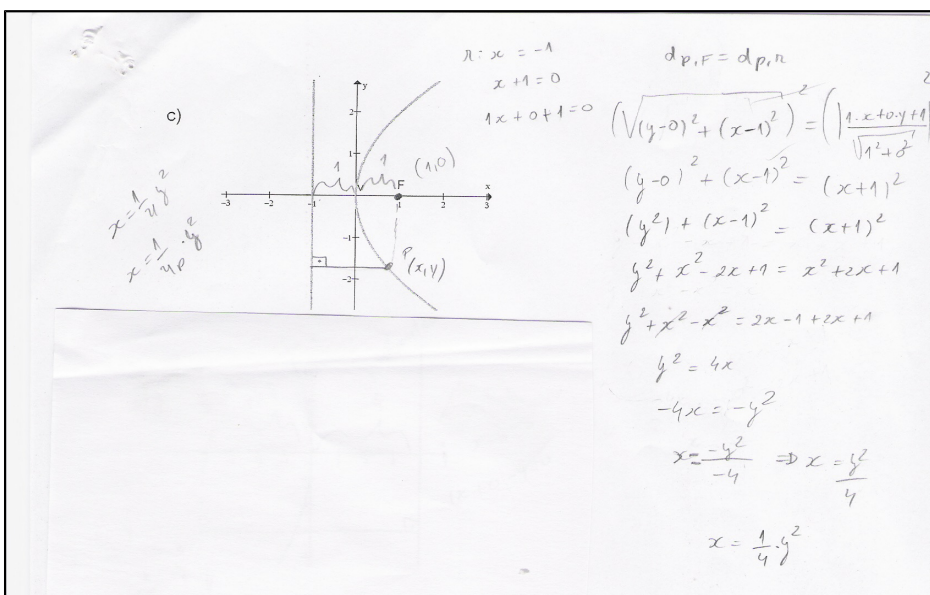 c)
r: x = -1
x + 1 = 0
1x + 0 + 1 = 0
y
2
1
1 1
(1,0)
V
F
x
-3 -2 -1 1 2 3
-1
P
(x,y)
-2
x = 1/4 y²
x = 1/4p · y²
d P,F = d P,r
(√((y-0)² + (x-1)²))² = (|1·x+0·y+1|/√(1²+0²))²
(y-0)² + (x-1)² = (x+1)²
(y²) + (x-1)² = (x+1)²
y² + x² - 2x + 1 = x² + 2x + 1
y² + x² - x² = 2x - 1 + 2x + 1
y² = 4x
-4x = -y²
x = -y²/-4 ⇒ x = y²/4
x = 1/4 · y²